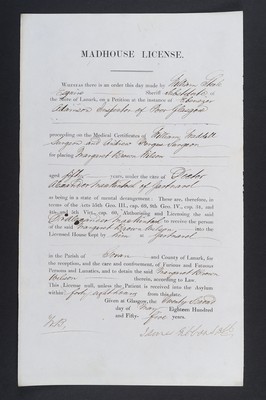 MADHOUSE LICENSE.
WHEREAS there is an order this day made by William
Esquire Sheriff Substitute of
the Shire of Lanark, on a Petition at the instance of
Inspector of Poor Glasgow
proceeding on the Medical Certificates of William
Surgeon and Andrew Fergus Surgeon
for placing Margaret Brown
Wilson
aged fifty years, under the care of Doctor
Alexander Mackintosh of Gartnavel
as being in a state of mental derangement: These are, therefore, in
terms of the Acts 55th Geo. III., cap. 69, 9th Geo. IV., cap. 34, and
4th and 5th Vict., cap. 60, Authorising and Licensing the said
Dr Alexander Mackintosh to receive the person
of the said Margaret Brown Wilson into the
Licensed House Kept by him at Gartnavel
in the Parish of Govan and County of Lanark, for
the reception, and the care and confinement, of Furious and Fatuous
Persons and Lunatics, and to detain the said Margaret Brown
Wilson therein, according to Law.
This License null, unless the Patient is received into the Asylum
within forty eight hours from this date.
Given at Glasgow, the twenty second
day of May Eighteen Hundred
and Fifty- five years.